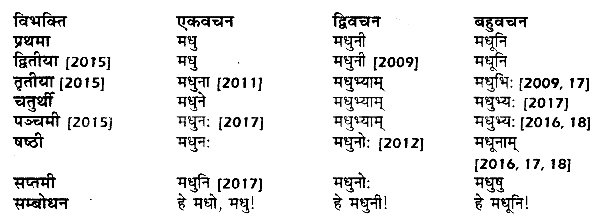 विभक्ति एकवचन द्विवचन बहुवचन
प्रथमा मधु मधुनी मधूनि
द्वितीया [2015] मधु मधुनी [2009] मधूनि
तृतीया [2015] मधुना [2011] मधुभ्याम् मधुभिः [2009, 17]
चतुर्थी मधुने मधुभ्याम् मधुभ्यः [2017]
पञ्चमी [2015] मधुनः [2017] मधुभ्याम् मधुभ्यः [2016, 18]
षष्ठी मधुनः मधुनोः [2012] मधूनाम्
[2016, 17, 18]
सप्तमी मधुनि [2017] मधुनोः मधुषु
सम्बोधन हे मधो, मधु! हे मधुनी! हे मधूनि!